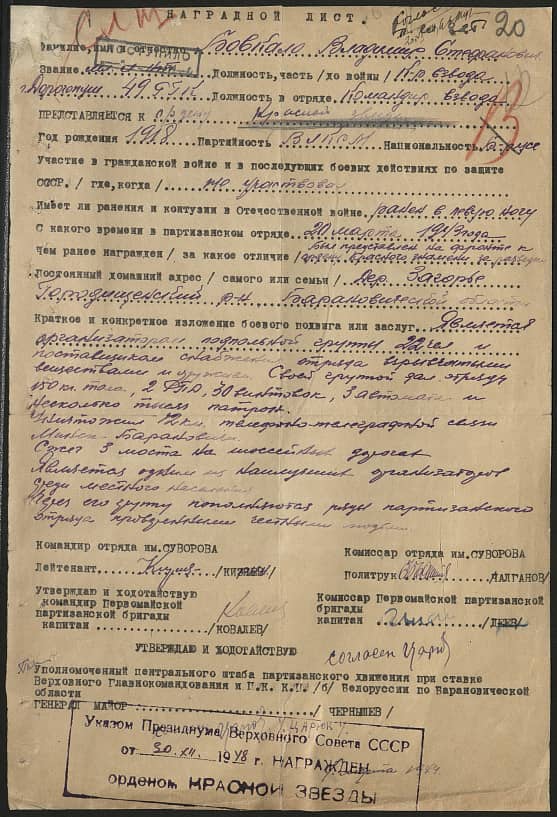 20
НАГРАДНОЙ ЛИСТ.
Фамилие, имя и отчество Бовкало Владимир Степанович
Звание Должность, часть /до войны/ К-р взвода
49 Должность в отряде Командир взвода
ПРЕДСТАВЛЯЕТСЯ к ордену Красной
Год рождения 1918 Партийность ВЛКСМ Национальность
Участие в гражданской войне и в последующих боевых действиях по защите
СССР. /где, когда/ не участвовал
Имеет ли ранения и контузии в Отечественной войне. ранен в левую ногу
С какого времени в партизанском отряде. 20 марта 1943 года
был представлен на фронте к
Чем ранее награжден /за какое отличие/ ордену Красного знамени за разведку
Постоянный домашний адрес /самого или семьи/ дер. Загорье
Городищенский р-н Барановической области
Краткое и конкретное изложение боевого подвига или заслуг. Является
организатором подпольной группы 22 чел и
поставщиком снабжения отряда взрывчатыми
веществами и оружием. Своей группой дал отряду
150 кг. тола, 2 30 винтовок, 3 автомата и
несколько тысяч патрон.
Уничтожил 12 км. телефонно-телеграфной связи
Минск-Барановичи.
Сжег 3 моста на шоссейных дорогах
Является одним из наилучших организаторов
среди местного населения
Через его группу пополняются ряды партизанского
отряда проверенными честными людьми.
Командир отряда им.СУВОРОВА Комиссар отряда им.СУВОРОВА
Лейтенант Политрук /АЛГАНОВ/
Утверждаю и ходотайствую
командир Первомайской партизанской бригады
капитан /КОВАЛЕВ/
Комиссар Первомайской партизанской
бригады
капитан /ДЕЕВ/
УТВЕРЖДАЮ И ХОДОТАЙСТВУЮ
согласен
Уполномоченный центрального штаба партизанского движения при ставке
Верховного Главнокомандования и Ц.К. К.П./б/ Белоруссии по Барановической
области
ГЕНЕРАЛ МАЙОР /ЧЕРНЫШЕВ/
Указом Президиума Верховного Совета СССР
от 30.XII. 1948 г. НАГРАЖДЕН
орденом КРАСНОЙ ЗВЕЗДЫ